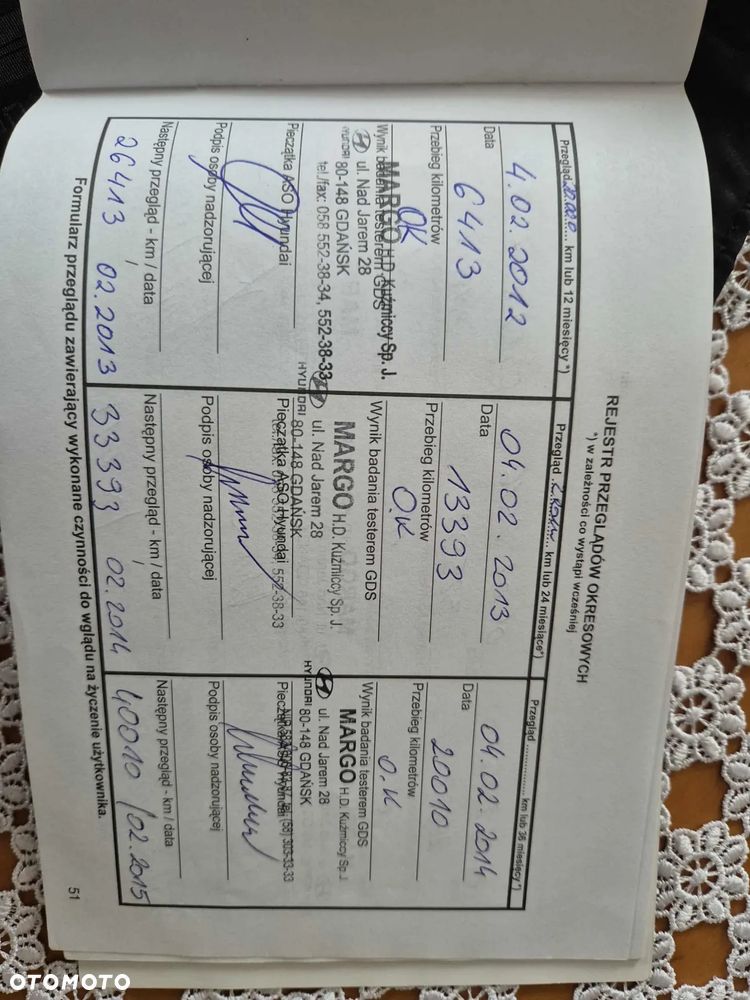 REJESTR PRZEGLĄDÓW OKRESOWYCH
*) w zależności co wystąpi wcześniej
Przegląd 20.000 km lub 12 miesięcy *)
4.02.2012
Data
6413
Przebieg kilometrów
OK
Wynik badania testerem GDS
MARGO H.D. Kuźmiccy Sp. J.
ul. Nad Jarem 28
HYUNDAI 80-148 GDAŃSK
tel./fax: 058 552-38-34, 552-38-33
Pieczątka ASO Hyundai
Podpis osoby nadzorującej
Następny przegląd - km / data
26413 / 02.2013
Przegląd km lub 24 miesiące*)
04.02.2013
Data
13393
Przebieg kilometrów
O.K
Wynik badania testerem GDS
MARGO H.D. Kuźmiccy Sp. J.
ul. Nad Jarem 28
HYUNDAI 80-148 GDAŃSK
552-38-33
Pieczątka ASO Hyundai
Podpis osoby nadzorującej
Następny przegląd - km / data
33393 / 02.2014
Przegląd ................. km lub 36 miesięcy*)
04.02.2014
Data
20010
Przebieg kilometrów
O.K
Wynik badania testerem GDS
MARGO H.D. Kuźmiccy Sp. J.
ul. Nad Jarem 28
HYUNDAI 80-148 GDAŃSK
tel. (58) 303-33-33
Pieczątka ASO Hyundai
Podpis osoby nadzorującej
Następny przegląd - km / data
40010 / 02.2015
Formularz przeglądu zawierający wykonane czynności do wglądu na życzenie użytkownika.
51
OTOMOTO